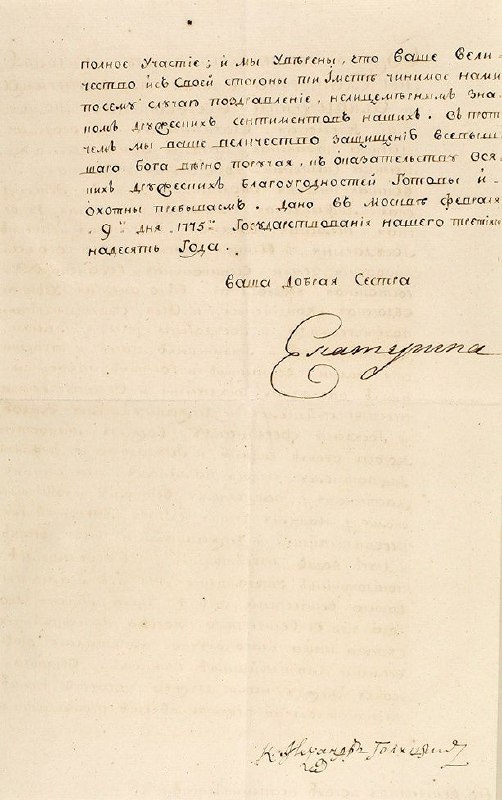 полное участие; и мы уверены, что Ваше Вели-
чество и съ Своей стороны при чинимое нами
по сему случаю поздравление, нелицемѣрнымъ зна-
комъ дружескихъ сентиментовъ нашихъ. Въ прот-
чемъ мы ваше величество защищенiю всевыш-
шаго бога вѣрно поручая, къ оказательству вся-
кихъ дружескихъ благоугодностей готовы и
охотны пребываемъ. Дано въ Москвѣ февраля
9го дня 1775го Государствования нашего третiяго
надесять Года.
Ваша Добрая Сестра
Екатерина
К. Александръ Голицынъ